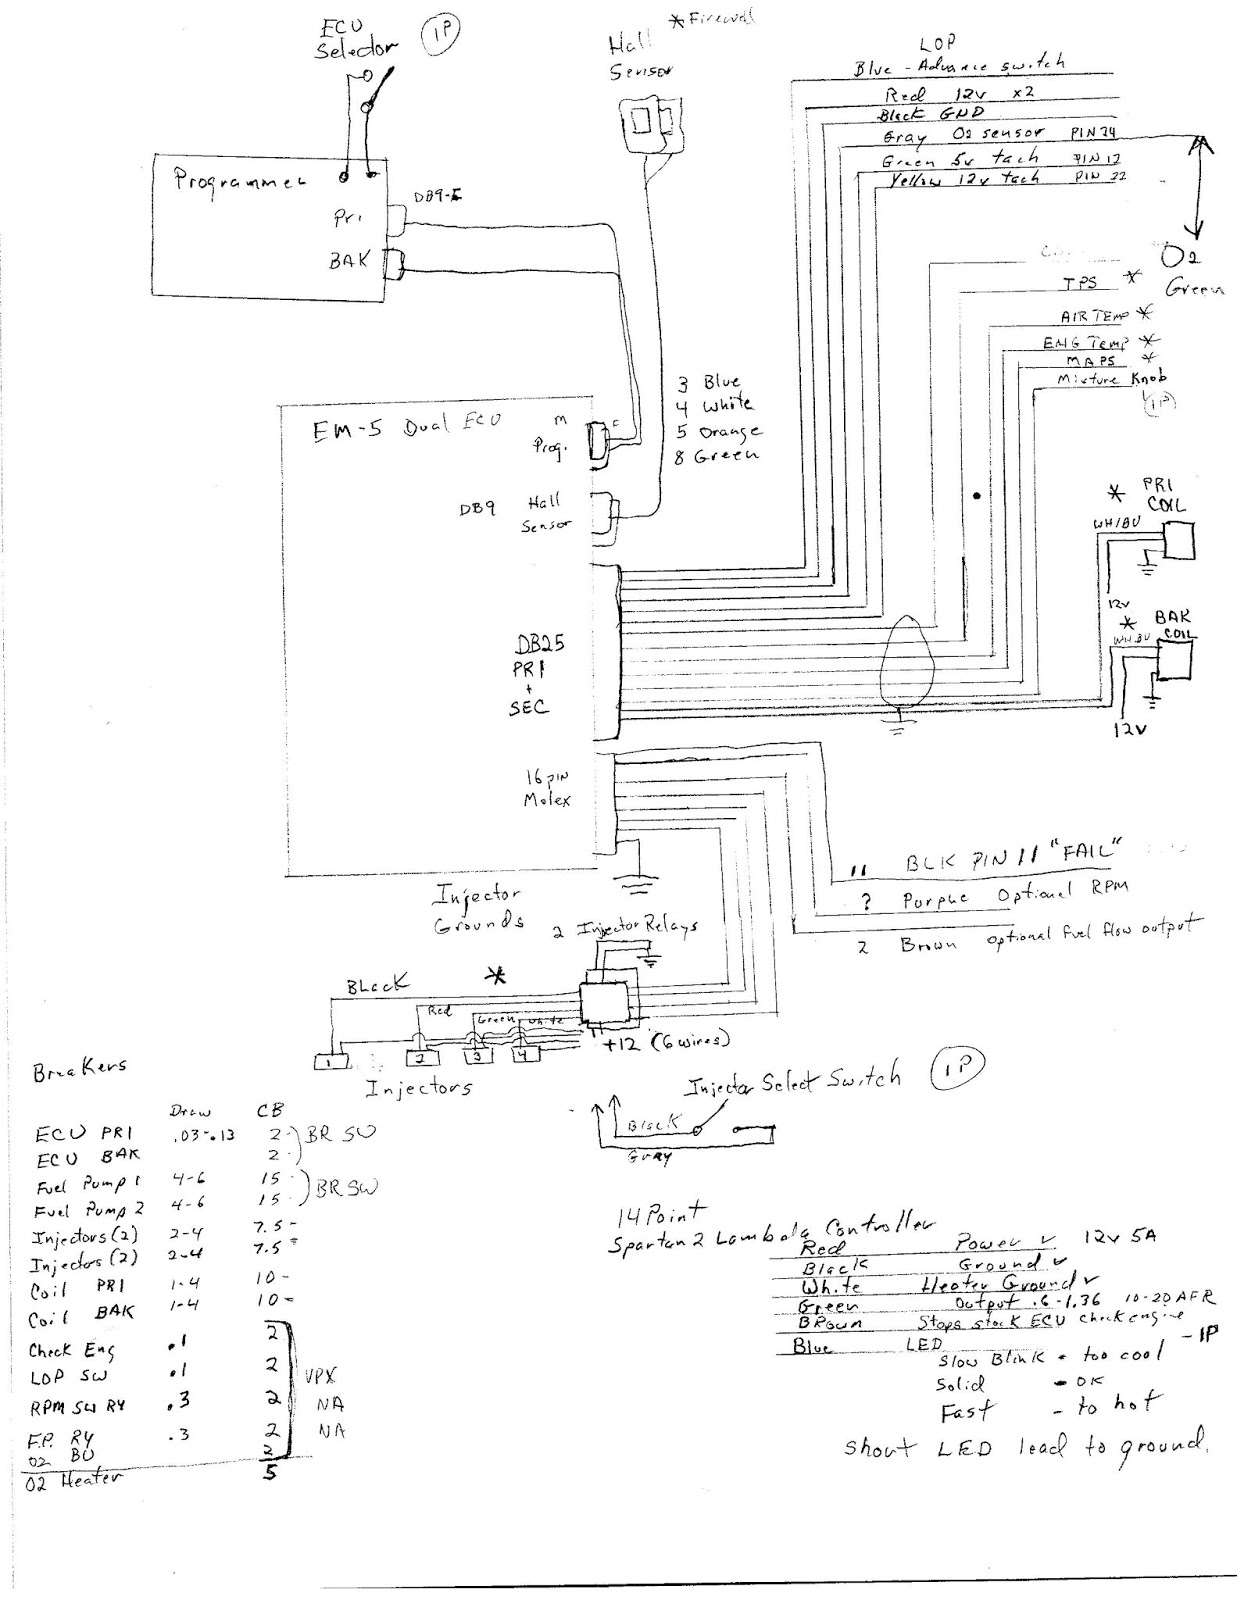 ECU
Selector
1P
Hall
Sensor
*Firewall
LOP
Blue - Advance switch
Red 12v x2
Black GND
Gray O2 sensor PIN 24
Green 5v tach PIN 12
Yellow 12v tach PIN 22
O2
Green
TPS *
AIR TEMP *
ENG Temp *
MAPS *
Mixture Knob
1P
Programmer
DB9-F
Pri
BAK
3 Blue
4 White
5 Orange
8 Green
EM-5 Dual ECU
M
F
Prog.
DB9 Hall
Sensor
DB25
PRI
+
SEC
16 pin
Molex
* PRI
COIL
WH/BU
12v
* BAK
COIL
WH/BU
12V
Injector
Grounds
11 BLK PIN 11 "FAIL"
? Purple Optional RPM
2 Brown optional fuel flow output
2 Injector Relays
Black *
Red
Green
White
+12 (6 wires)
1
2
3
4
Injectors
Injector Select Switch 1P
Black
Gray
Breakers
Draw CB
ECU PRI .03-.13 2
ECU BAK 2
BR SW
Fuel Pump 1 4-6 15
Fuel Pump 2 4-6 15
BR SW
Injectors (2) 2-4 7.5 -
Injectors (2) 2-4 7.5 =
Coil PRI 1-4 10 -
Coil BAK 1-4 10 -
Check Eng .1 2
LOP SW .1 2
RPM SW RY .3 2
F.P. RY .3 2
O2 BU 2
O2 Heater 5
VPX
NA
NA
14 Point
Spartan 2 Lambda Controller
Red Power ✓ 12v 5A
Black Ground ✓
White Heater Ground ✓
Green Output .6-1.36 10-20 AFR
BRown Stops stock ECU check engine
Blue LED - 1P
Slow Blink - too cool
Solid - OK
Fast - to hot
Short LED lead to ground.